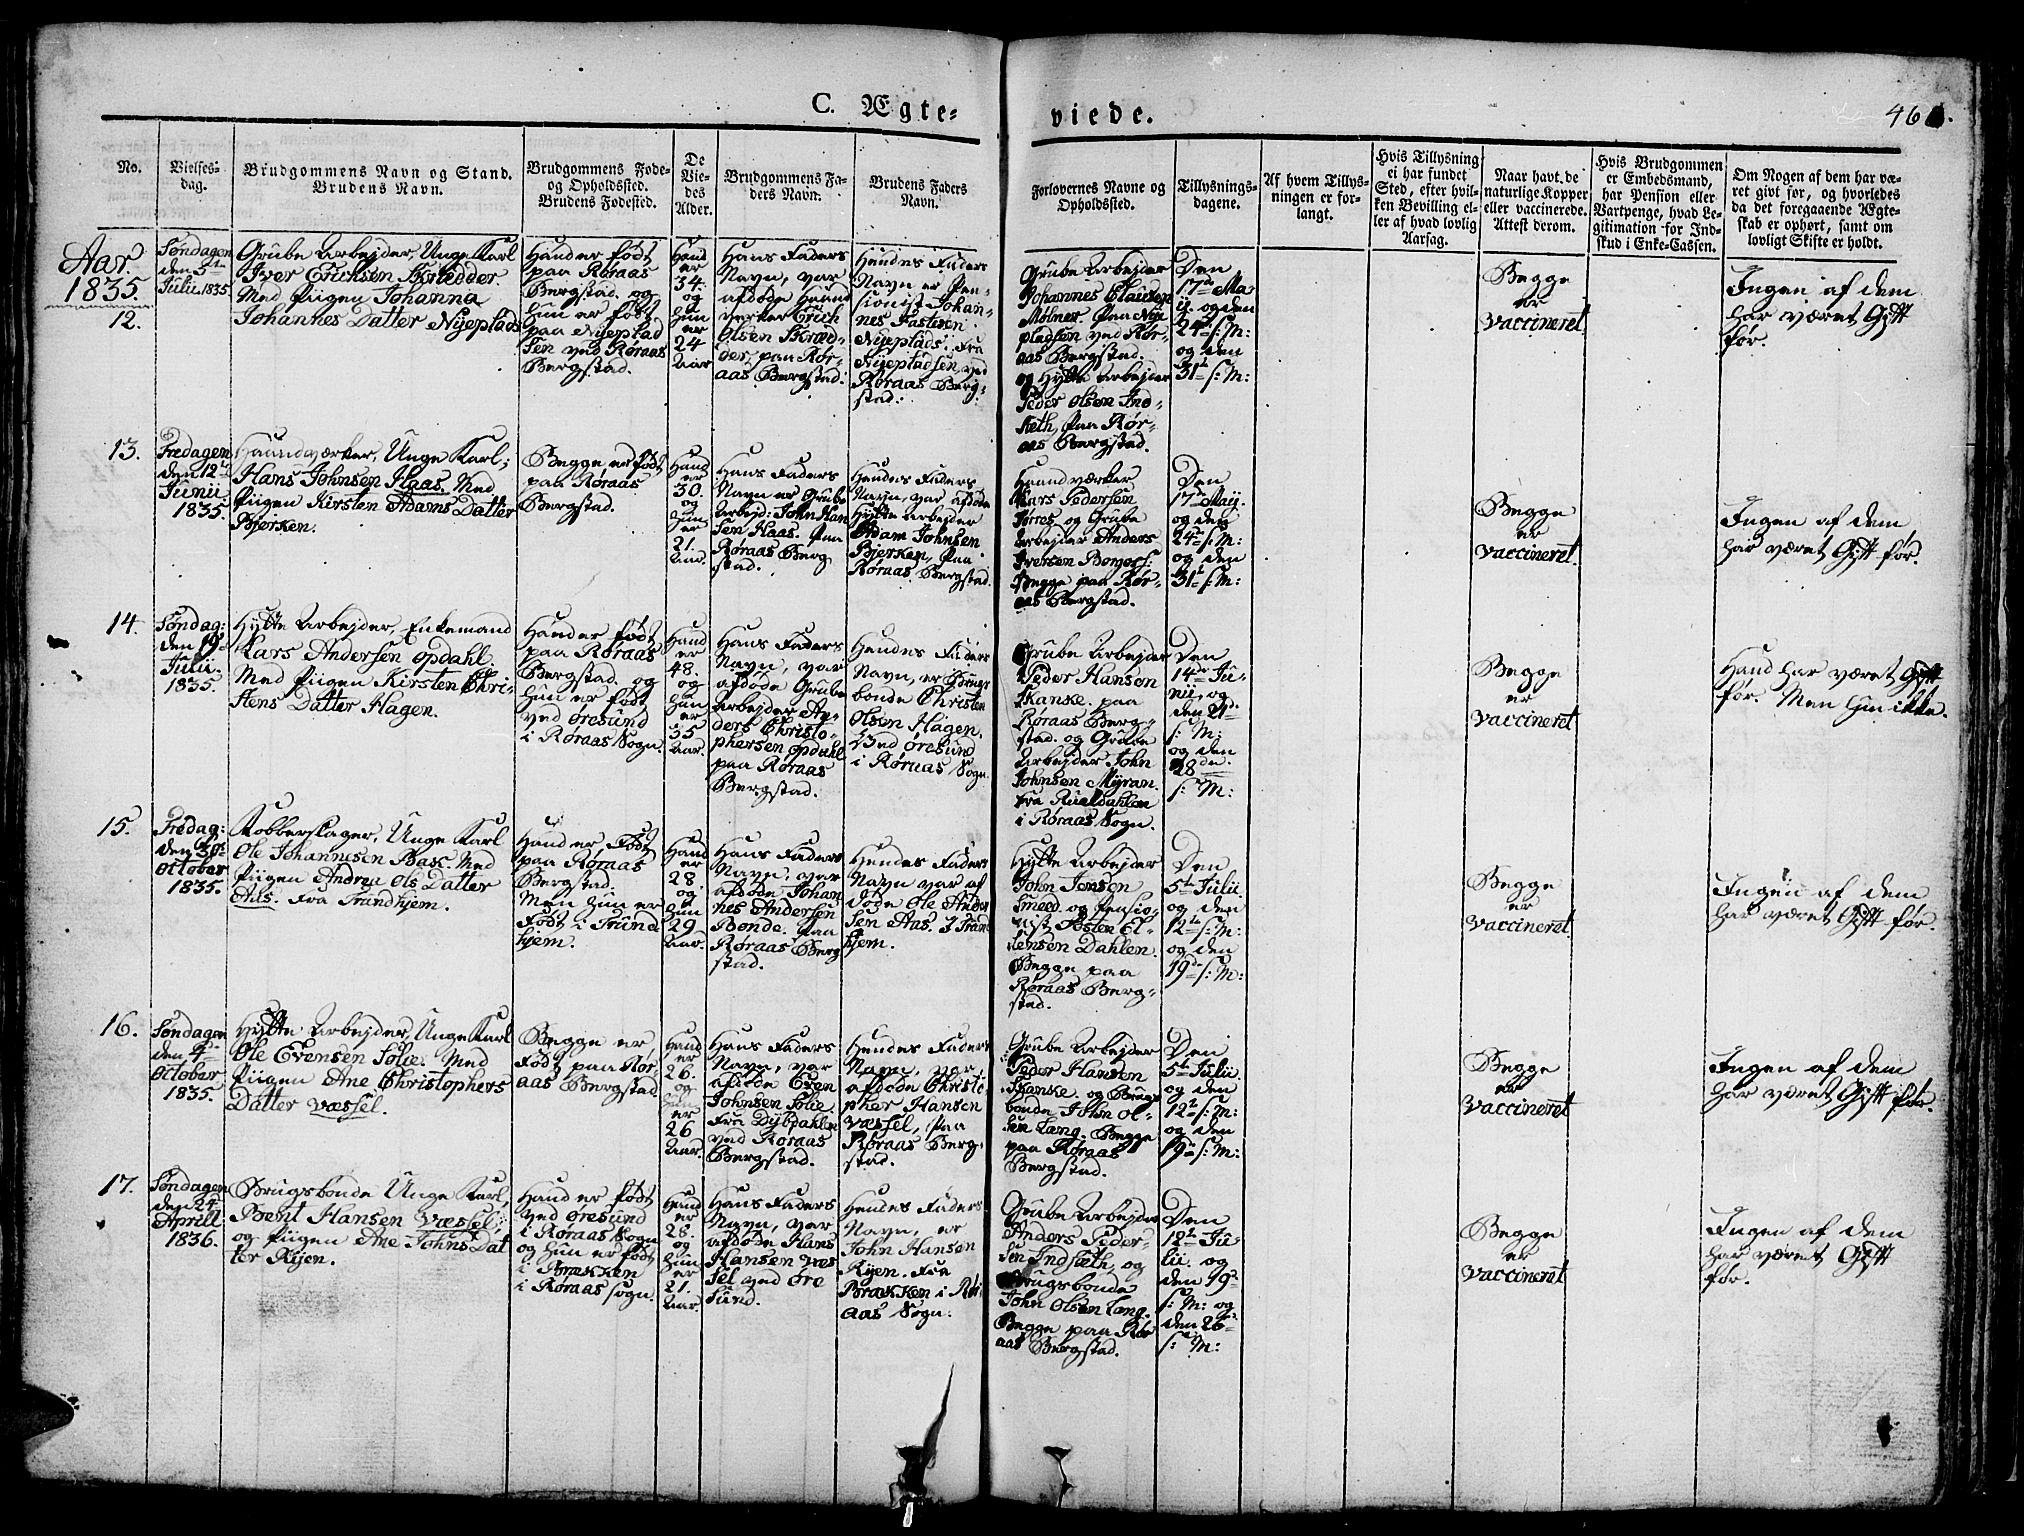 C. Ægte-
viede.
No.
Vielses-
dag.
Brudgommens Navn og Stand.
Brudens Navn.
Brudgommens Føde-
og Opholdssted.
Brudens Fødested.
De
Vie-
des
Alder.
Brudgommens Fa-
ders Navn.
Brudens Faders
Navn.
Forlovernes Navne og
Opholdssted.
Tillysnings-
dagene.
Af hvem Tillys-
ningen er for-
langt.
Hvis Tillysning
ei har fundet
Sted, efter hvil-
ken Bevilling el-
ler af hvad lovlig
Aarsag.
Naar havt de
naturlige Kopper
eller vaccinerede.
Attest derom.
Hvis Brudgommen
er Embedsmand,
har Pension eller
Vartpenge, hvad Le-
gitimation for Ind-
skud i Enke-Cassen.
Om Nogen af dem har væ-
ret givt før, og hvorledes
da det foregaaende Ægte-
skab er ophørt, samt om
lovligt Skifte er holdt.
Aar.
1835.
12.
Søndagen
den 5te
Julii 1835
Grube Arbejder, Unge Karl
Iver Erichsen Skrædder.
Med Piigen Johanna
Johannes Datter Nyeplads
Hand er født
paa Røraas
Bergstad. og
hun er født
paa Nyeplad
sen ved Røraas
Bergstad.
Hand
er
34.
og
hun
er
24
Aar
Hans Faders
Navn, var
afdøde Haand
verker Erich
Olsen Skræd-
der, paa Rør-
aas Bergstad.
Hendes Faders
Navn er Pen-
sionist Johan-
nes Fastesen
Nyeplads. Fra
Nyepladsen ved
Røraas Berg-
stad.
Grube Arbejder
Johannes Clausen
Mølmer. Paa Nye
pladsen ved Rør-
aas Bergstad.
og Hytte Arbejder
Peder Olsen Ind-
sæth, Paa Rør-
aas Bergstad.
Den
17de Ma-
ij. og den
24de s: M:
og den
31te s: M:
Begge
er
vaccineret
Ingen af dem
har været Gift
før.
13.
Fredagen
den 12te
Junii
1835.
Haandværker, Unge Karl,
Hans Johnsen Haas. Med
Piigen Kirsten Adams Datter
Bjerken.
Begge er født
paa Røraas
Bergstad.
Hand
er
30.
og
hun
er
21.
Aar.
Hans Faders
Navn er Grube
Arbejd: John Han
sen Haas. Paa
Røraas Berg
stad.
Hendes Faders
Navn, var afdøde
Hytte Arbejder
Adam Johnsen
Bjerken, Paa
Røraas Bergstad.
Haandværker
Lars Pedersen
Torres og Grube
Arbejder Anders
Iversen
Begge paa Rør-
aas Bergstad.
Den
17de Maij.
og den
24de s: M:
og den
31te s: M:
Begge
er
vaccineret.
Ingen af dem
har været Gift før.
14.
Søndag:
den 19de
Julii
1835.
Hytte Arbejder, Enkemand
Lars Andersen Opdahl.
Med Piigen Kirsten Chri-
stens Datter Hagen.
Hand er født
paa Røraas
Bergstad. og
hun er født
ved Øresund
i Røraas Sogn.
Hand
er
48.
og
hun
er
35
Aar.
Hans Faders
Navn, var
afdøde Grube
Arbejder An-
ders Christo-
phersen Opdahl
paa Røraas
Bergstad.
Hendes Faders
Navn, er
bonde Christen
Olsen Hagen,
Ved Øresund
i Røraas Sogn.
Grube Arbejder
Peder Hansen
Skanke. paa
Røraas Berg-
stad. og Grube
Arbejder John
Johnsen Myran.
fra Rualdahlen
i Røraas Sogn.
Den
14de Ju-
nii, og
den 21de
s: M:
og den
28de
s: M:
Begge
er
vaccineret
Hand har været Gift
før. Men hun ikke.
15.
Fredag:
den 30te
October
1835.
Kobberslager, Unge Karl
Ole Johannesen Med
Piigen Andrea Ols Datter
Aas. Fra Trundhjem.
Hand er, Født
paa Røraas
Bergstad.
Men hun er
Født i Trund
hjem.
Hand
er
28.
og
hun
29
Aar.
Hans Faders
Navn, var
afdøde Johan
nes Andersen
Bonde. paa
Røraas Berg
stad.
Hendes Faders
Navn var af
døde Ole Ander
sen Aas. I Tran
hjem.
Hytte Arbejder
John Jensen
Smed. og Pensio-
nist Østen El-
lensen Dahlen.
Begge paa
Røraas Berg-
stad.
Den
5te Julii
og den
12te s: M:
og den
19de s: M:
Begge
er
vaccineret.
Ingen af dem
har været Gift før.
16.
Søndagen
den 4de
October
1835.
Hytte Arbejder, Unge Karl
Ole Evensen Solie. Med
Piigen Ane Christophers
Datter Væssel.
Begge er
Født paa Rør
aas Bergstad
Hand
er
26.
og
hun
er
26
Aar.
Hans Faders
Navn, var
afdøde Even
Johnsen Solie.
Fra Dybdahlen
ved Røraas
Bergstad.
Hendes Faders
Navn, var
afdøde Christo
pher Hansen
Væssel, Paa
Røraas Berg-
stad.
Grube Arbejder
Peder Hansen
Skanke. og Brugs
bonde John Ol-
sen Lang. Begge
paa Røraas
Bergstad.
Den
5te Julii.
og den
12te s: M:
og den
19de s: M:
Begge
er
vaccineret
Ingen af dem
har været Gift før.
17.
Søndagen
den 24de
Aprill
1836.
Brugsbonde Unge Karl,
Bent Hansen Væssel,
og Piigen Ane Johns Dat
ter Ryen.
Hand er født
ved Øresund
i Røraas Sogn
og hun er født
i Brækken
i Røraas sogn.
Hand
er
28.
og
hun
er
21.
Aar.
Hans Faders
Navn, var
afdøde Hans
Hansen Væs
sel ved Øre
sund.
Hendes Faders
Navn, er
John Hansen
Ryen. Fra
Brækken i Rør
aas Sogn.
Grube Arbejder
Anders Peder-
sen Indsæth, og
Brugsbonde
John Olsen Lang.
Begge paa Rør
aas Bergstad.
Den
12te Ju-
lii. og
den 19de
s: M: og
den 26de
s: M:
Begge
er
vaccineret
Ingen af dem
har været Gift
før.